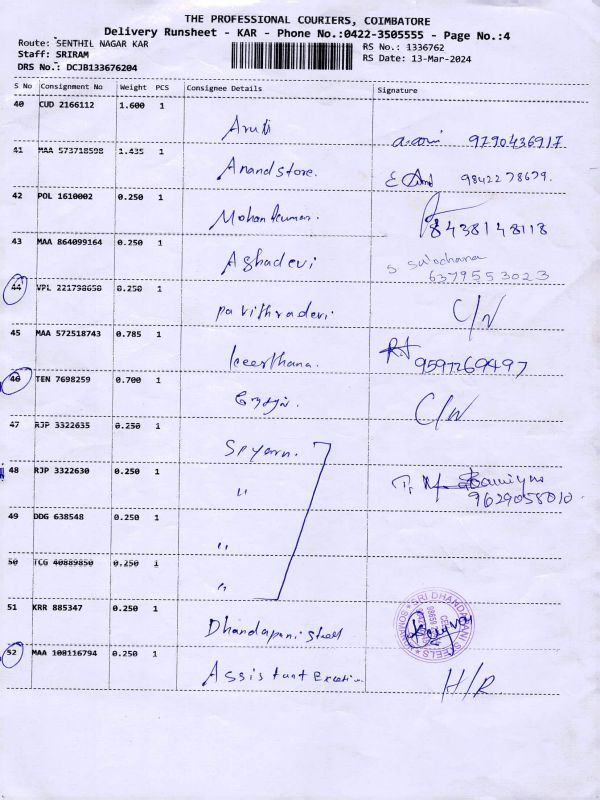 THE PROFESSIONAL COURIERS, COIMBATORE
Delivery Runsheet - KAR - Phone No.:0422-3505555 - Page No.:4
Route: SENTHIL NAGAR KAR
RS No.: 1336762
Staff: SRIRAM
RS Date: 13-Mar-2024
DRS No.: DCJB133676204
S No Consignment No Weight PCS Consignee Details Signature
40 CUD 2166112 1.600 1
Aruti 9790436917
41 MAA 573718598 1.435 1
Anand store. 9842278679.
42 POL 1610002 0.250 1
Mohan kumar. 8438148118
43 MAA 864099164 0.250 1
Ashadevi S Sulochana
6379553023
44 VPL 221798650 0.250 1
pavithradevi C/N
45 MAA 572518743 0.785 1
keerthana. 9597269497
46 TEN 7698259 0.700 1
C/N
47 RJP 3322635 0.250 1
SP yarn.
48 RJP 3322630 0.250 1
"
9629058010
49 DDG 638548 0.250 1
"
50 TCG 40889850 0.250 1
"
51 KRR 885347 0.250 1
Dhandapani steel
SRI DHANDAPANI STEELS
52 MAA 108116794 0.250 1
Assistant Executive H/R